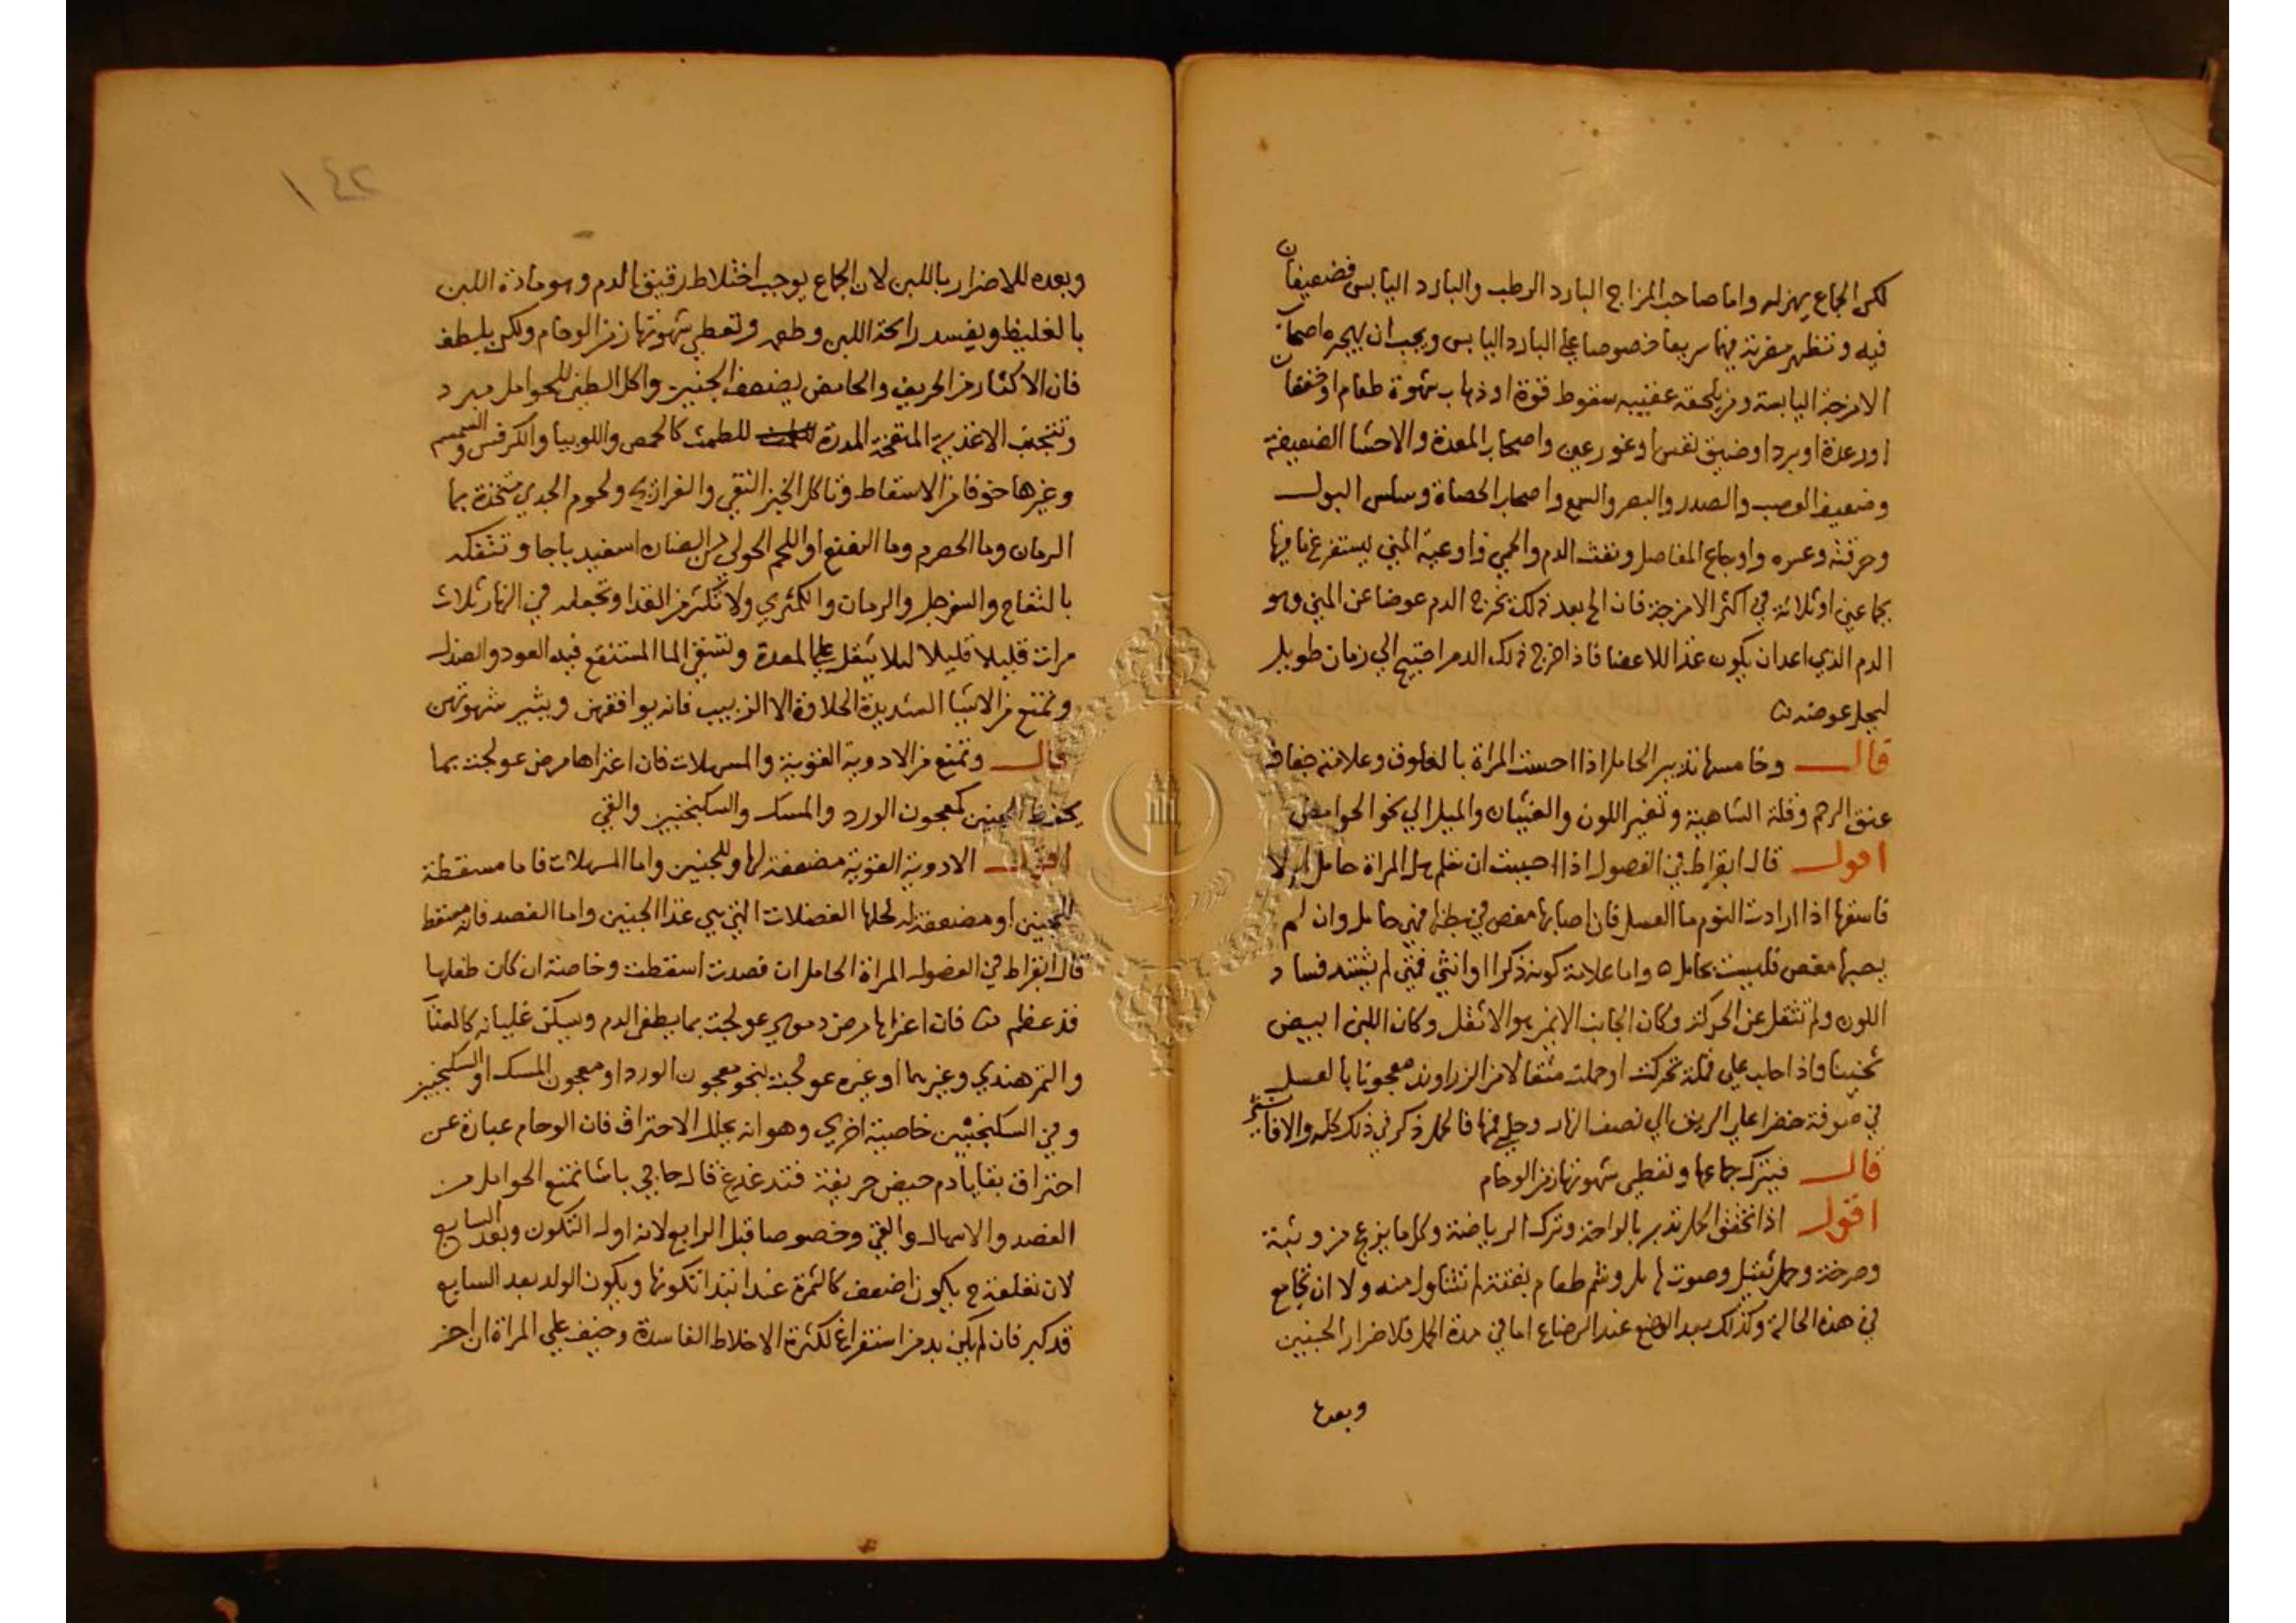 لكن الجماع يهزله واما صاحب المزاج البارد الرطب والبارد اليابس فضعيفان
فيه وتظهر مضرته فيهما سريعا خصوصا علي البارد اليابس ويجب ان يهجره اصحاب
الامزجة اليابسة ومن يلحقه عقيبه سقوط قوة او ذهاب شهوة طعام او خفقان
او رعدة او برد او ضيق نفس او غور عين واصحاب المعدة والاحشا الضعيفة
وضعيف العصب والصدر والبصر والسمع واصحاب الحصاة وسلس البول
وحرقته وعسره واوجاع المفاصل ونفث الدم والحمي واوعية المني يستفرغ ما فيها
بجماعين او ثلاثة في اكثر الامزجة فان الح بعد ذلك خرج الدم عوضا عن المني وهو
الدم الذي اعد ان يكون غذا للاعضا فاذا خرج ذلك الدم احتيج الي زمان طويل
ليحل عوضه
قال وخامسها تدبير الحامل اذا احست المراة بالعلوق وعلامته جفاف
عنق الرحم وقلة الشاهية وتغير اللون والغثيان والميل الي نحو الحوامض
اقول قال ابقراط في الفصول اذا احببت ان تعلم هل المراة حامل ام لا
فاسقها اذا ارادت النوم ما العسل فان اصابها مغص في بطنها فهي حامل وان لم
يصبها مغص فليست بحامل واما علامة كونه ذكرا او انثي فمتي لم يشتد فساد
اللون ولم تثقل عن الحركة وكان الجانب الايمن هو الاثقل وكان اللبن ابيض
ثخينا واذا حلب علي قملة تحركت او حملت مثقالا من الزراوند معجونا بالعسل
في صوفة خضرا علي الريق الي نصف النهار وحلي فمها فالحمل ذكر في ذلك كله والا فانثي
قال فيترك جماعها وتعطي شهوتها زمن الوحام
اقول اذا تحقق الحمل تدبر بالراحة وترك الرياضة وكل ما يزعج من وثبة
وصرخة وحمل ثقيل وصوت هايل وشم طعام بغتة لم تتناول منه ولا ان تجامع
في هذه الحالة وكذلك بعد الوضع عند الرضاع اما في مدة الحمل فلاضرار الجنين
وبعده
١٤٢
وبعده للاضرار باللبن لان الجماع يوجب اختلاط رقيق الدم وهو مادة اللبن
بالغليظ ويفسد رايحة اللبن وطعمه وتعطي شهوتها زمن الوحام ولكن بلطف
فان الاكثار من الحريف والحامض يضعف الجنين واكل الطين للحوامل مبرد
وتتجنب الاغذية المنفخة المدرة للطمث كالحمص واللوبيا والكرفس والسمسم
وغيرها خوفا من الاسقاط وتاكل الخبز النقي والفراريج ولحوم الجدي متخذة بما
الرمان وما الحصرم وما النعنع او اللحم الحولي من الضان اسفيدباجا وتتفكه
بالتفاح والسفرجل والرمان والكمثري ولا تكثر من الغذا وتجعله في النهار ثلاث
مرات قليلا قليلا ليلا يثقل علي المعدة وتسقي الما المستنقع فيه العود والصندل
وتمتنع من الاشيا الشديدة الحلاوة الا الزبيب فانه يوافقهن ويثير شهوتهن
قال وتمتنع من الادوية القوية والمسهلات فان اعتراها مرض عولجت بما
يحفظ الجنين كمعجون الورد والمسك والسكنجبين والقي
اقول الادوية القوية مضعفة لها وللجنين واما المسهلات فاما مسقطة
للجنين او مضعفة له لحلها الفضلات التي هي غذا الجنين واما الفصد فانه مسقط
قال ابقراط في الفصول المراة الحامل ان فصدت اسقطت وخاصة ان كان طفلها
قد عظم فان اعتراها مرض دموي عولجت بما يطفي الدم ويسكن غليانه كالعناب
والتمر هندي وغيرهما او غيره عولجت بنحو معجون الورد او معجون المسك او السكنجبين
وفي السكنجبين خاصية اخري وهو انه يحلل الاحتراق فان الوحام عبارة عن
احتراق بقايا دم حيض حريفة قال حاجي باشا تمتنع الحوامل من
الفصد والاسهال والقي وخصوصا قبل الرابع لانه اول التكون وبعد السابع
لان تعلقه ح يكون اضعف كالثمرة عند ابتدا تكونها ويكون الولد بعد السابع
قد كبر فان لم يكن بد من استفراغ لكثرة الاخلاط الفاسدة وخيف علي المراة ان اخر